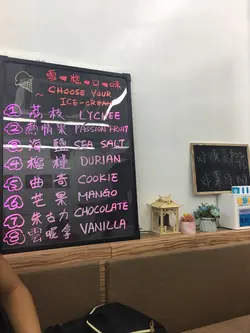 CHOOSE YOUR
ICE-CREAM
① 荔枝 LYCHEE
② 熱情果 PASSION FRUIT
③ 海鹽 SEA SALT
④ 榴槤 DURIAN
⑤ 曲奇 COOKIE
⑥ 芒果 MANGO
⑦ 朱古力 CHOCOLATE
⑧ 雲呢拿 VANILLA